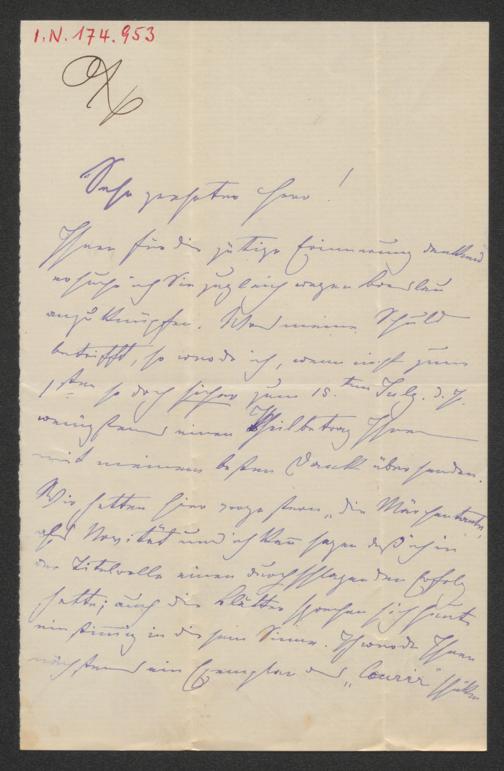 I.N. 174.953
Sehr geehrter Herr!
Ihnen für die gütige Erinnerung dankend
ersuche ich Sie zugleich wegen Breslau
anzuknüpfen. Was meine Schuld
betrifft, so werde ich, wenn nicht zum
1sten so doch sicher zum 15.ten July d. J.
wenigstens einen Theilbetrag Ihnen
mit meinem besten Dank übersenden.
Wir hatten hier vorgestern „die Märchentante"
als Novität und ich kann sagen daß ich in
der Titelrolle einen durchschlagenden Erfolg
hatte; auch die Blätter sprechen sich heute
einstimmig in diesem Sinne. Ich werde Ihnen
nächstens ein Exemplar des „Courir"